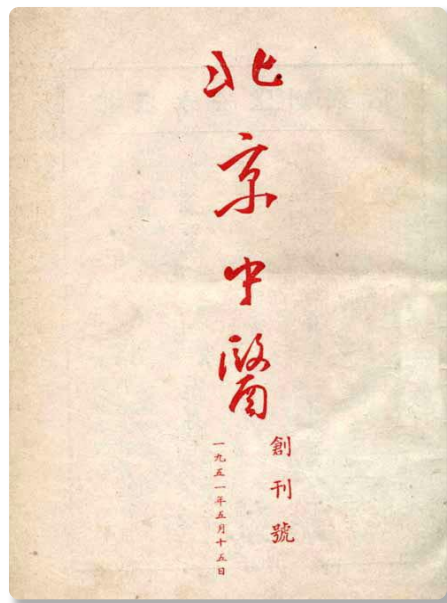 北京中醫
創刊號
一九五一年五月十五日